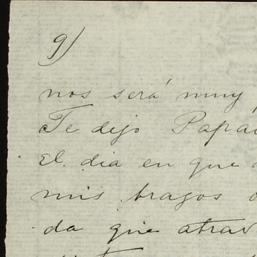 9)
nos será muy
Te dejo Papá
El dia en que
mis brazos
da que atrav